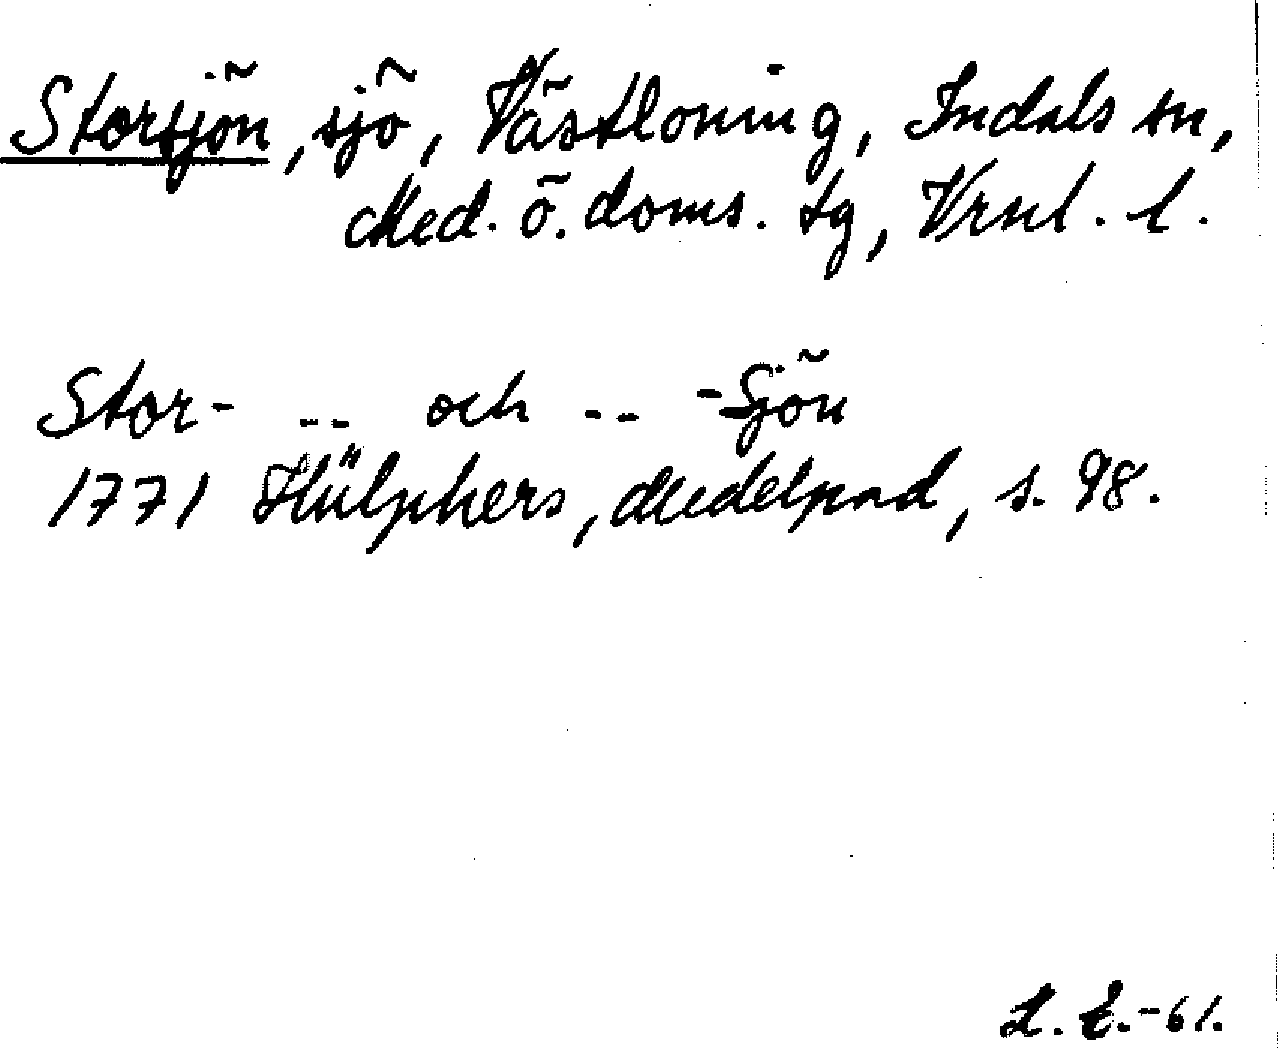 Storsjön, sjö, Västloning, Indals sn,
Med. ö. doms. tg, Vrnl. l.
Stor- -- och -- -Sjön
1771 Hülphers, Medelpad, s. 98.
L. E.-61.